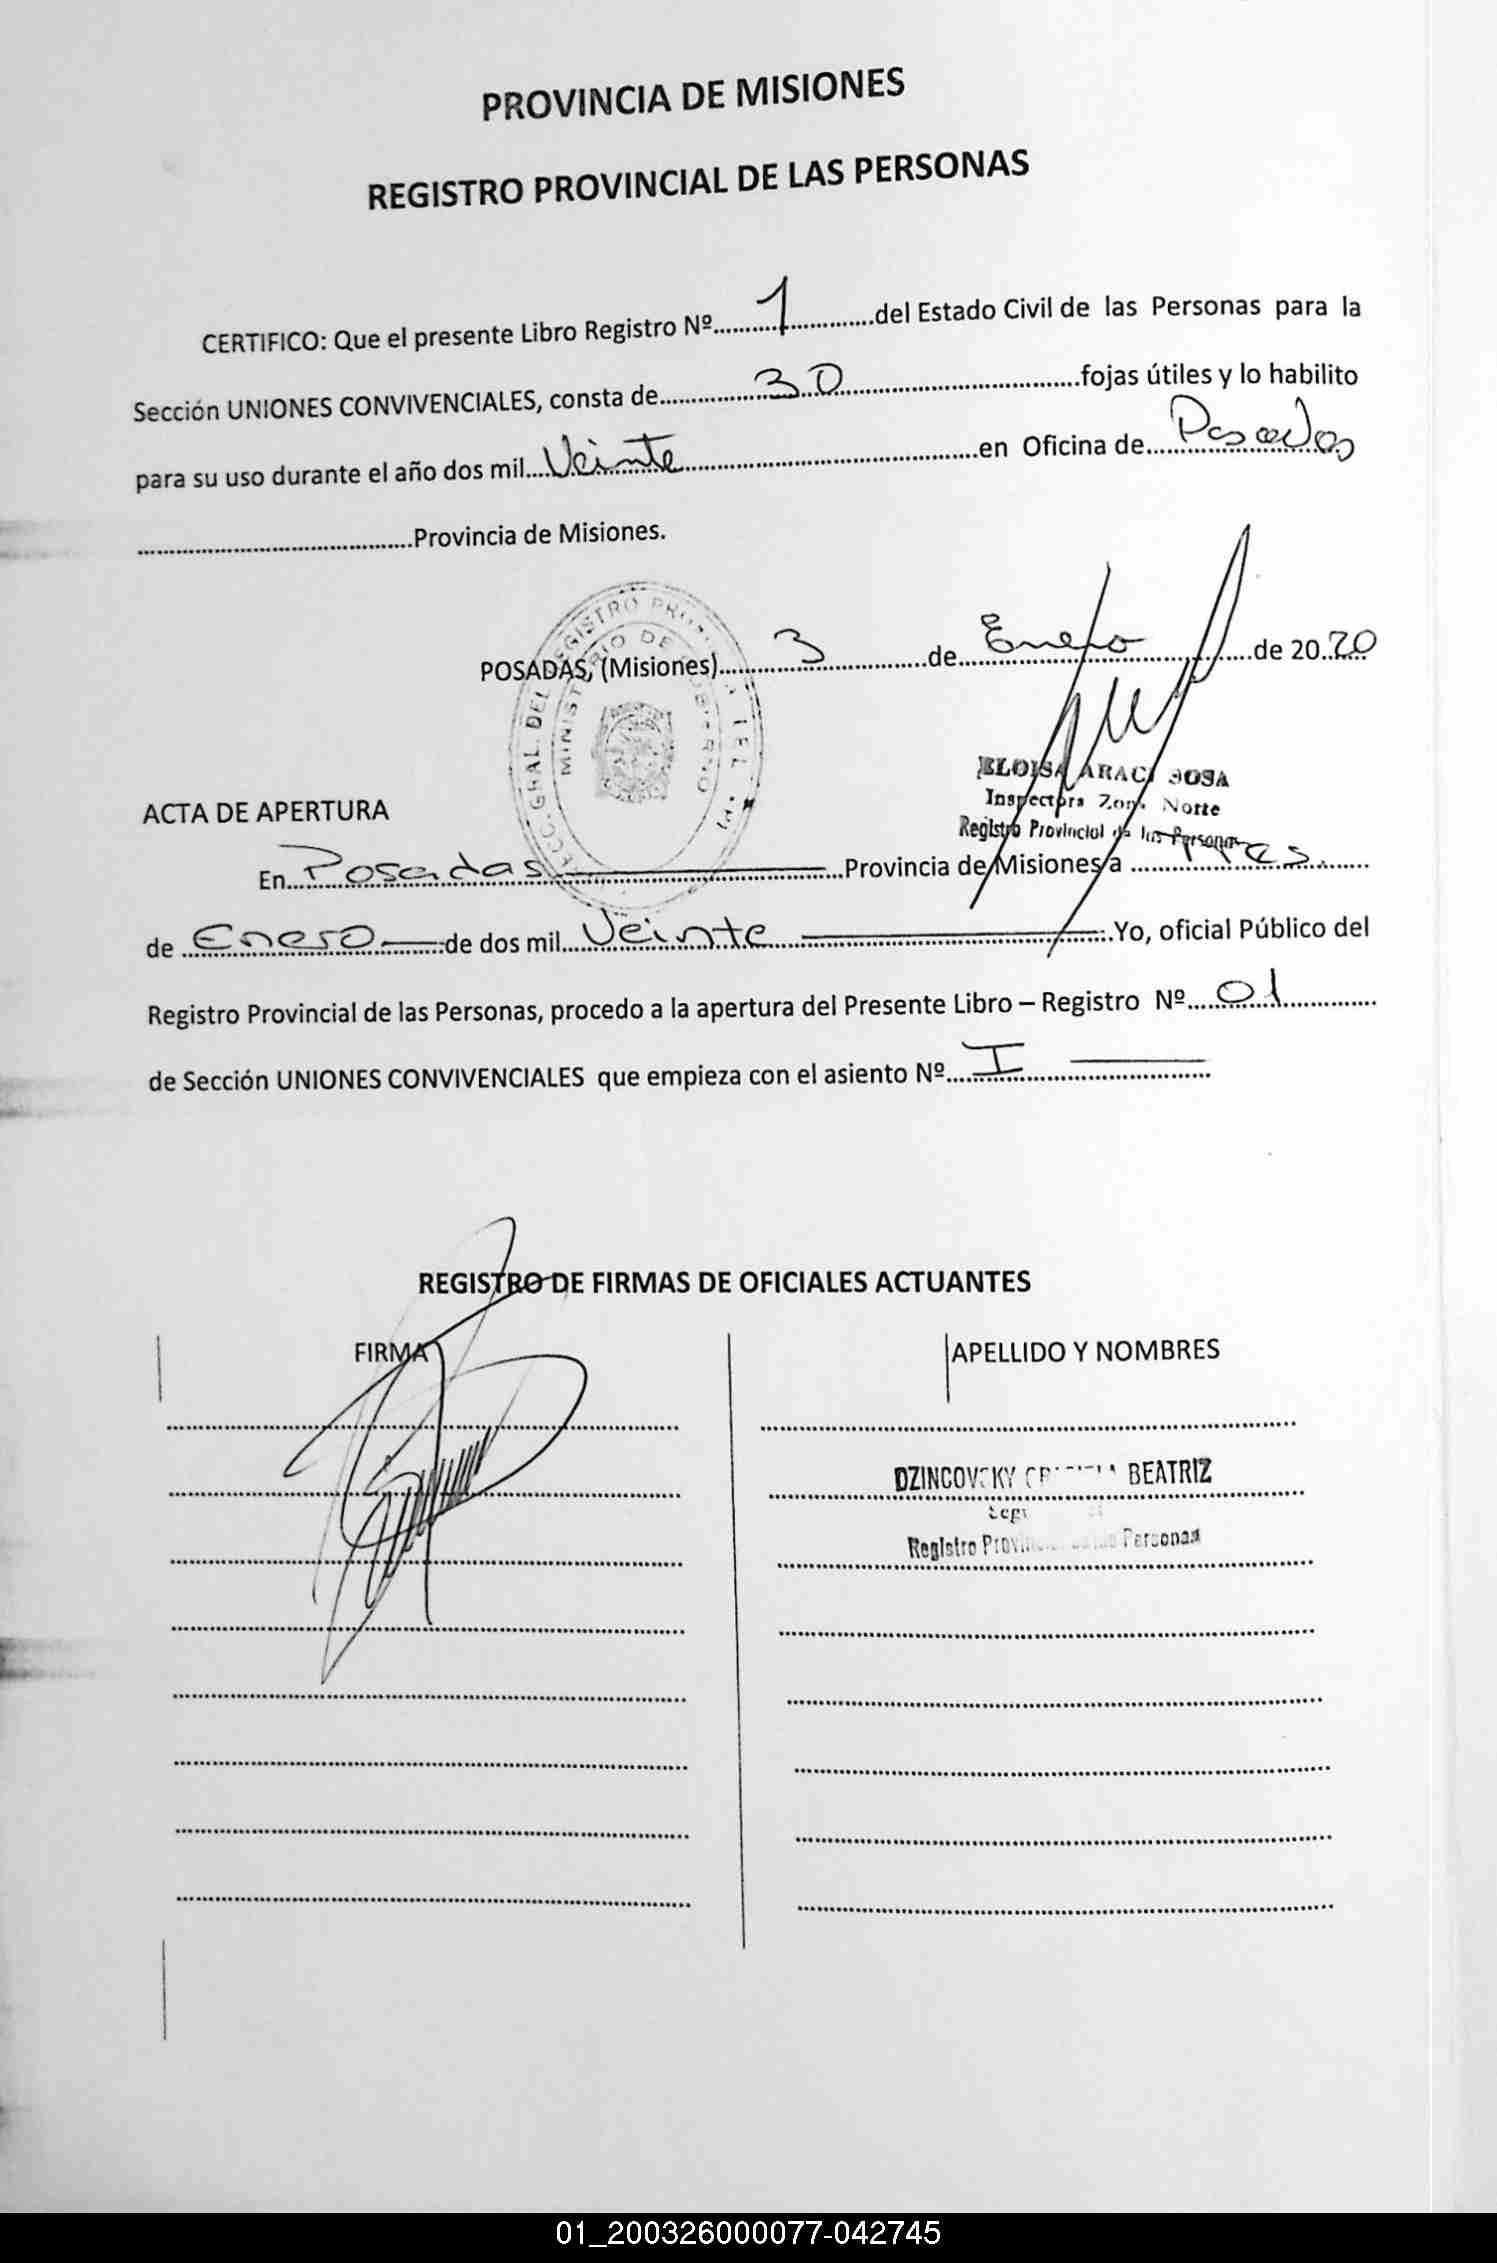 PROVINCIA DE MISIONES
REGISTRO PROVINCIAL DE LAS PERSONAS
CERTIFICO: Que el presente Libro Registro Nº 1 del Estado Civil de las Personas para la
Sección UNIONES CONVIVENCIALES, consta de 30 fojas útiles y lo habilito
para su uso durante el año dos mil Veinte en Oficina de Posadas
Provincia de Misiones.
POSADAS, (Misiones) 3 de Enero de 2020
MINISTERIO DE GOBIERNO
ELOISA ARACI SOSA
Inspectora Zona Norte
Registro Provincial de las Personas
ACTA DE APERTURA
En Posadas Provincia de Misiones a Tres
de Enero de dos mil Veinte Yo, oficial Público del
Registro Provincial de las Personas, procedo a la apertura del Presente Libro – Registro Nº 01
de Sección UNIONES CONVIVENCIALES que empieza con el asiento Nº I
REGISTRO DE FIRMAS DE OFICIALES ACTUANTES
FIRMA APELLIDO Y NOMBRES
DZINCOVSKY BEATRIZ
Registro Provincial de las Personas
01_200326000077-042745